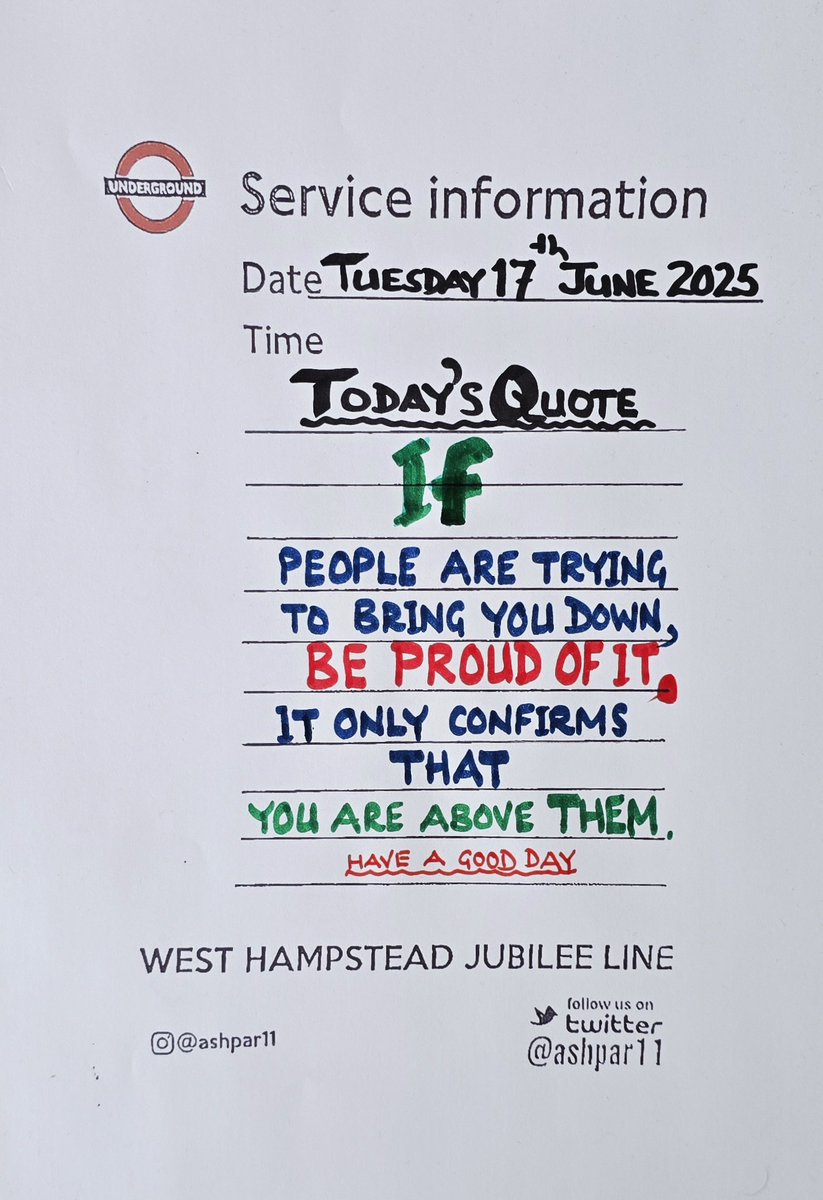 UNDERGROUND
Service information
Date TUESDAY 17th JUNE 2025
Time
TODAY'S QUOTE
If
PEOPLE ARE TRYING
TO BRING YOU DOWN,
BE PROUD OF IT.
IT ONLY CONFIRMS
THAT
YOU ARE ABOVE THEM.
HAVE A GOOD DAY
WEST HAMPSTEAD JUBILEE LINE
follow us on
twitter
@ashpar11
@ashpar11